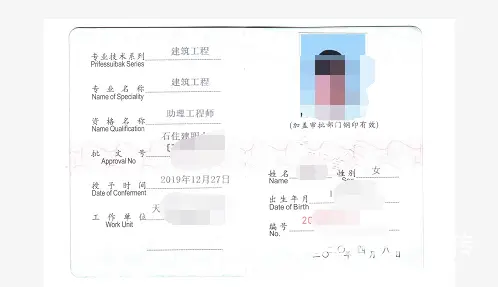 专业技术系列 建筑工程
Prifessuibak Series
专业名称 建筑工程
Name of Speciality
资格名称 助理工程师
Name Qualification
石住建职
批文号
Approval No
授予时间 2019年12月27日
Date of Conferment
工作单位 天
Work Unit
(加盖审批部门钢印有效)
姓名 性别 女
Name
出生年月
Date of Birth
编号 20
No.